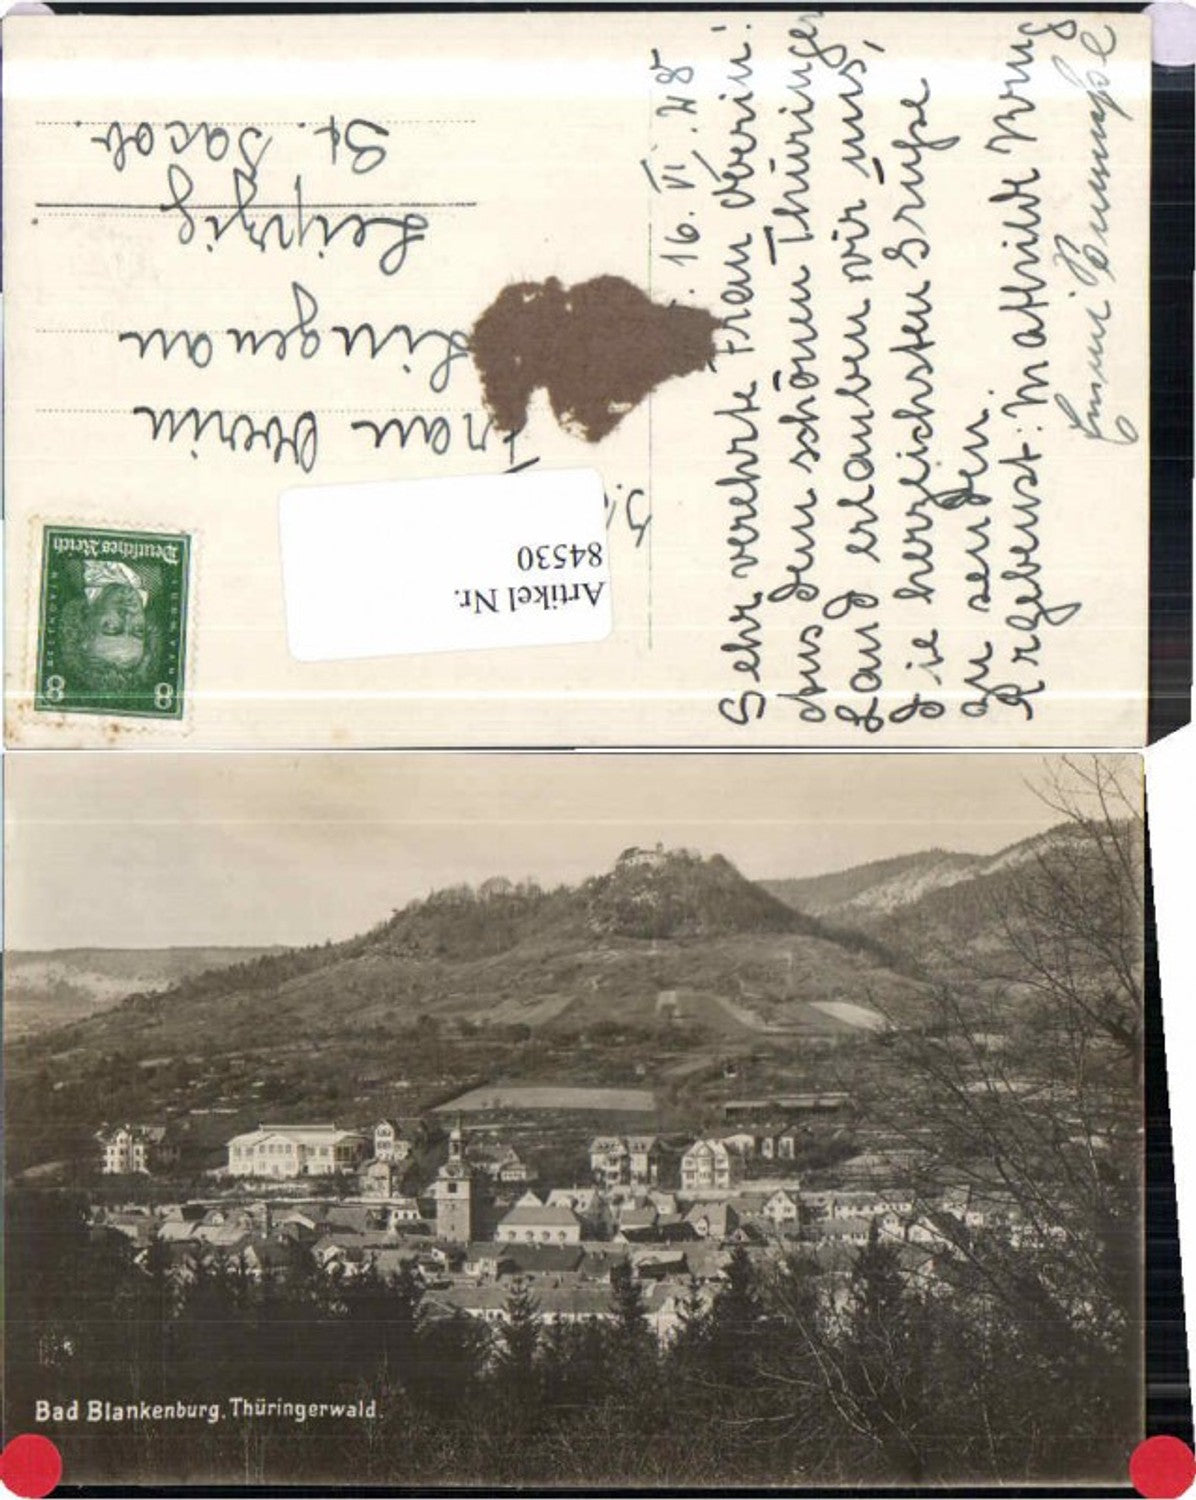 16. VI. 28
Sehr verehrte Frau Oberin!
Aus dem schönen Thüringer
Land erlauben wir uns,
die herzlichsten Grüsse
zu senden.
Ergebenst: Mathilde Krug
Emmi
Frau Oberin
Lingenau
Leipzig
St. Jacob.
Artikel Nr.
84530
Deutsches Reich
8 8
Bad Blankenburg, Thüringerwald.